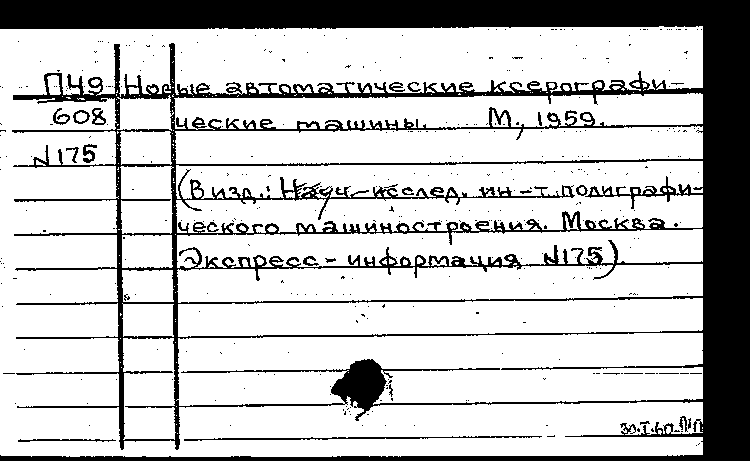 П49 Новые автоматические ксерографи-
608 ческие машины. М., 1959.
N175
(В изд.: Науч-исслед. ин-т полиграфи-
ческого машиностроения. Москва.
Экспресс-информация N175).
30.I.60.